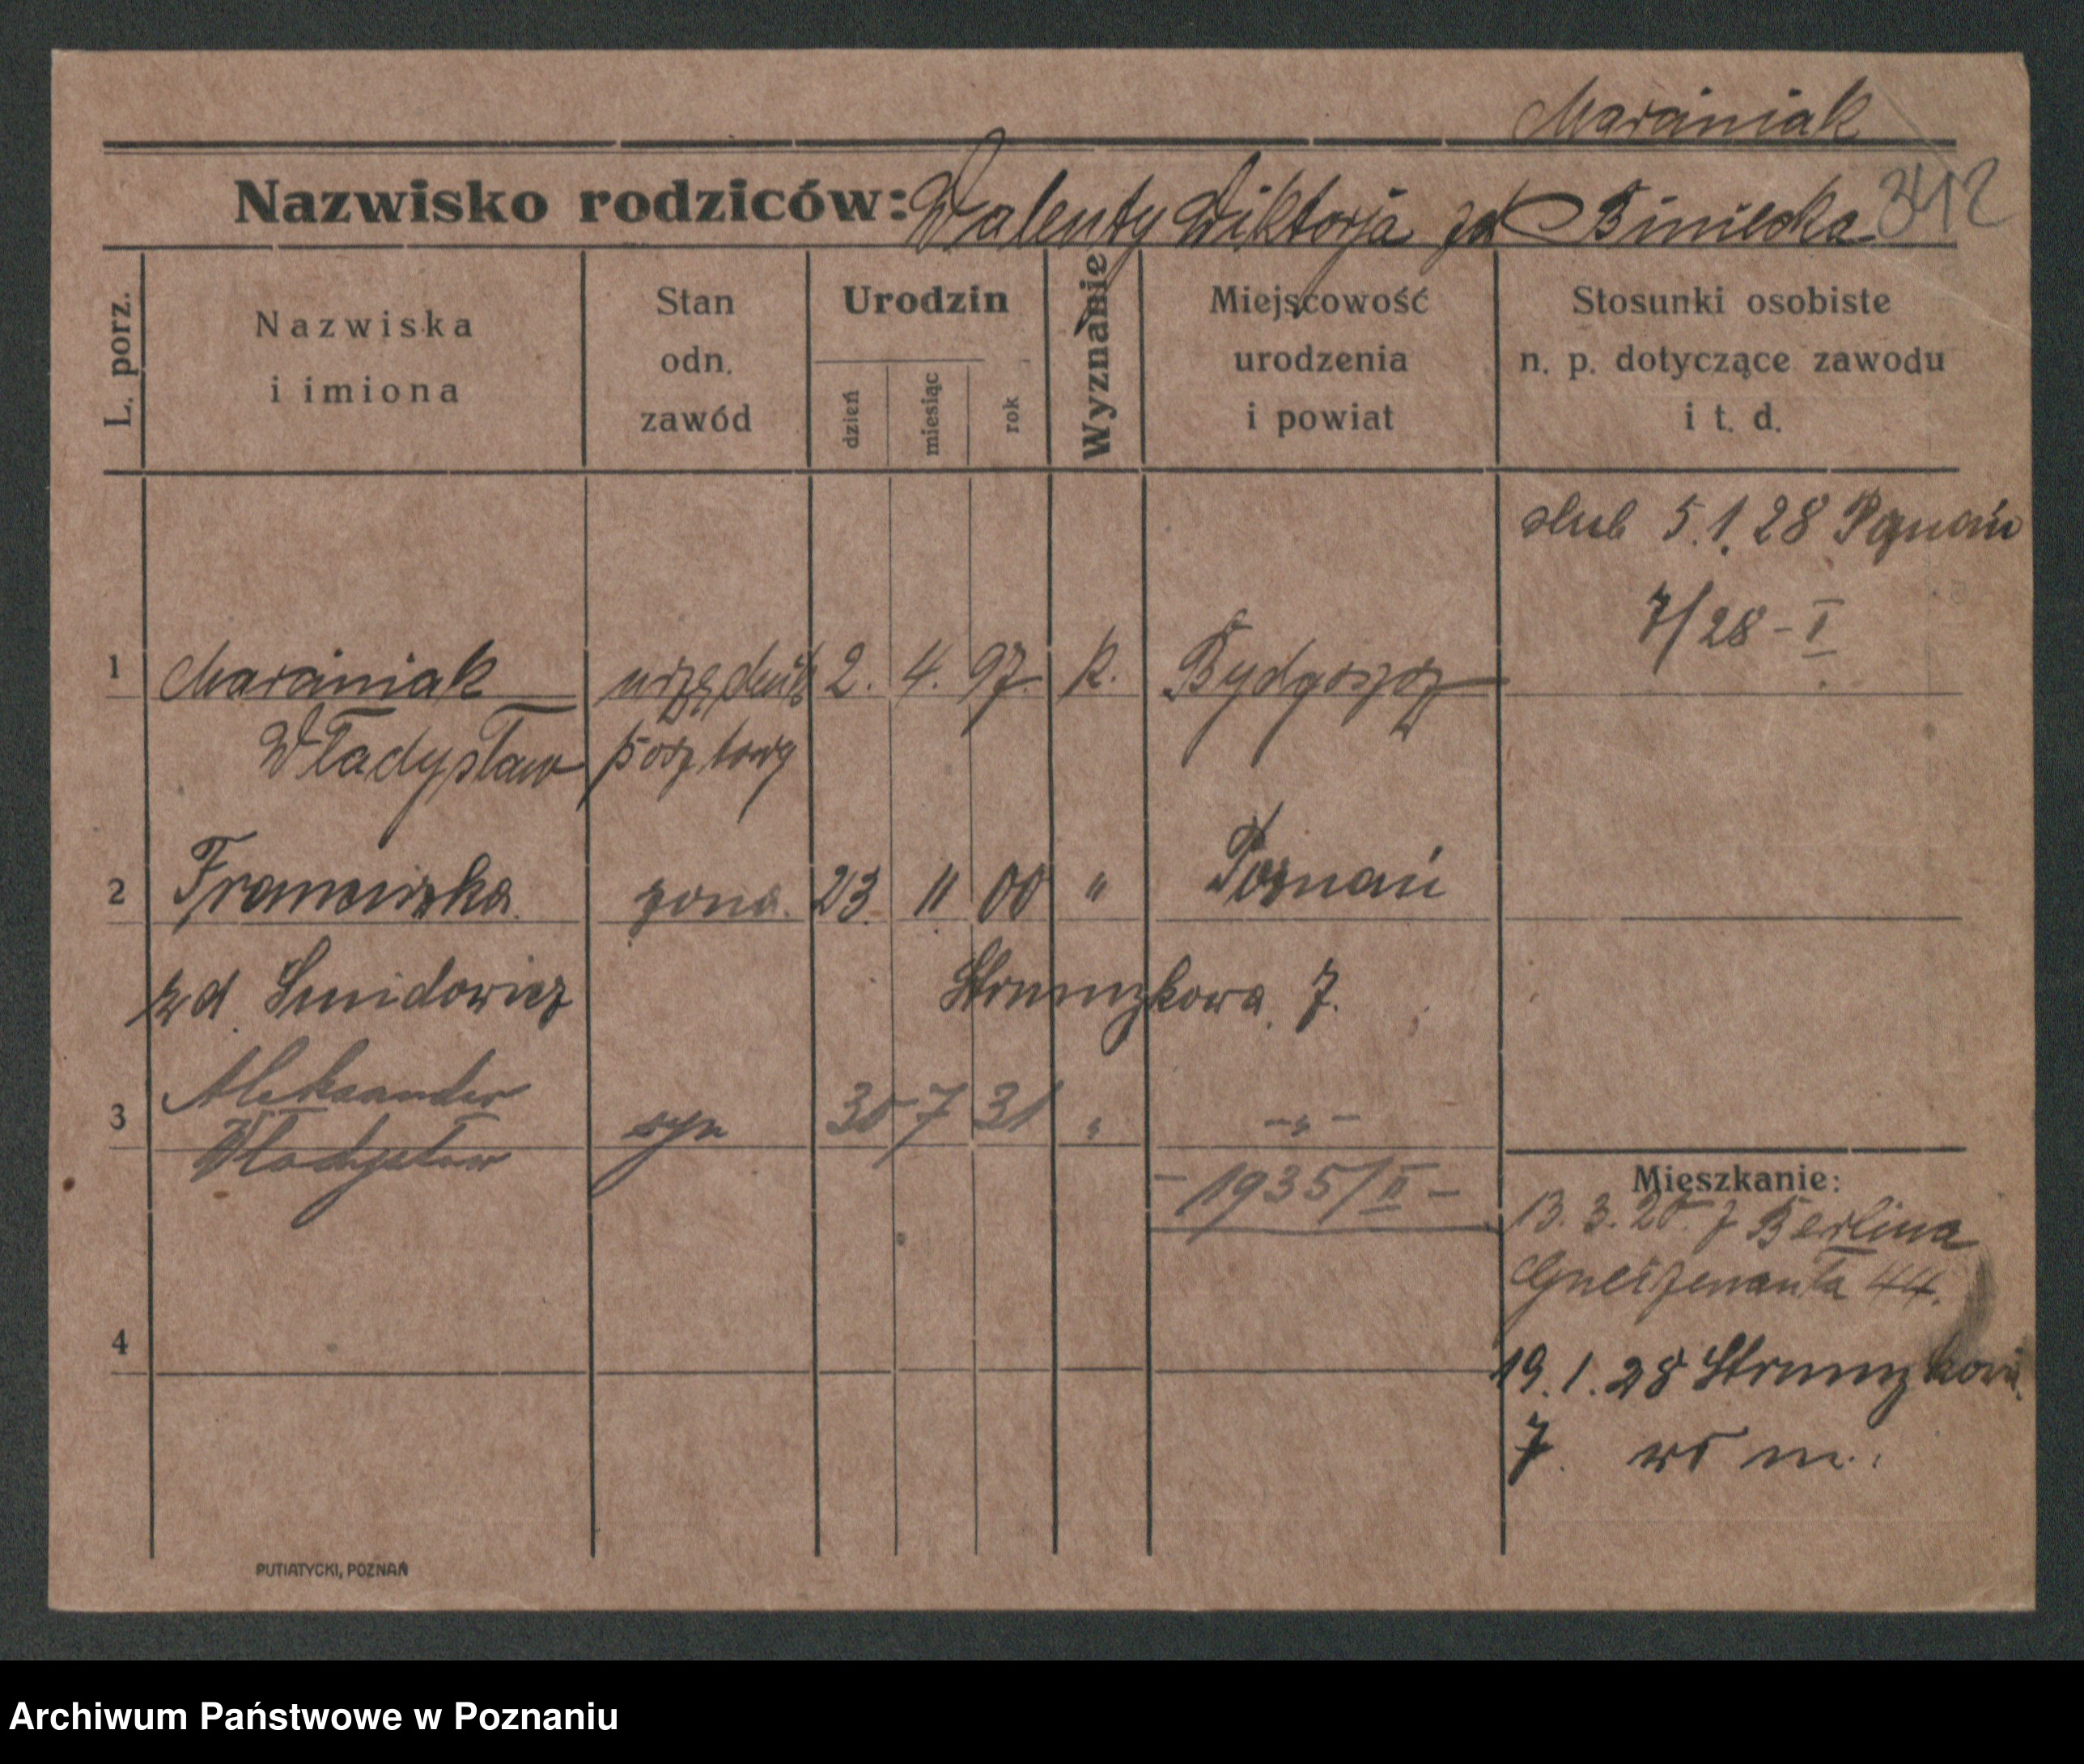 Marciniak
Nazwisko rodziców: Walenty Wiktorja zd Biniecka 342
L. porz.
Nazwiska i imiona
Stan odn. zawód
Urodzin
dzień
miesiąc
rok
Wyznanie
Miejscowość urodzenia i powiat
Stosunki osobiste n. p. dotyczące zawodu i t. d.
slub 5.1.28 Poznań
7/28 - I
1 Marciniak urzędnik 2. 4. 97. k. Bydgoszcz
Władysław pocztowy
2 Franciszka żona. 23 11 00 " Poznań
zd. Smidowicz Strumykowa 7.
3 Aleksander syn 30 7 31 " - " -
Władysław
- 1935/II -
Mieszkanie:
13. 3. 20. z Berlina
Gneizenau'a 44.
4
19. 1. 28 Strumykowa
7. wł m.
PUTIATYCKI, POZNAŃ
Archiwum Państwowe w Poznaniu